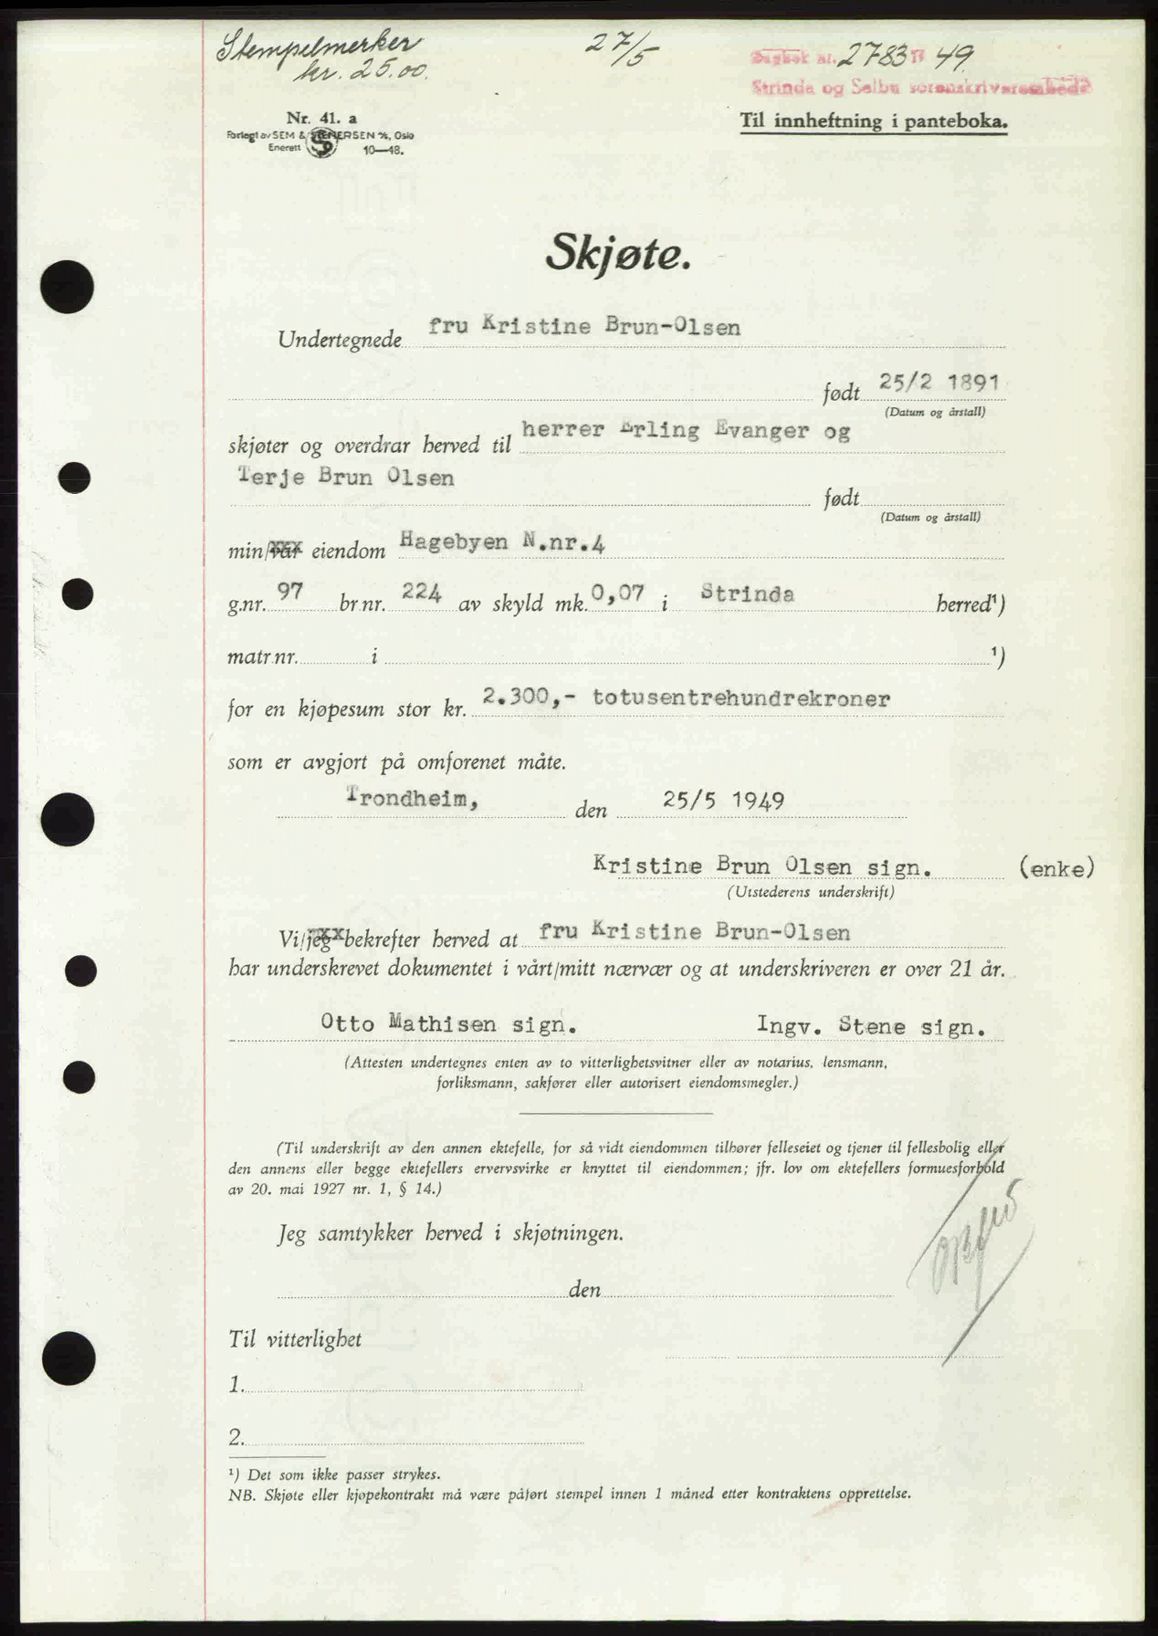 Stempelmerker
kr. 25.00.
27/5
Dagbok nr. 2783 19 49
Strinda og Selbu sorenskriverembede
Nr. 41. a
Forlegt av SEM & STENERSEN A/S, Oslo
Enerett 10—48.
Til innheftning i panteboka.
Skjøte.
Undertegnede fru Kristine Brun-Olsen
født 25/2 1891
(Datum og årstall)
skjøter og overdrar herved til herrer Erling Evanger og
Terje Brun Olsen
født
(Datum og årstall)
min/vår eiendom Hagebyen N.nr.4
g.nr. 97 br.nr. 224 av skyld mk. 0,07 i Strinda herred¹)
matr.nr. i ¹)
for en kjøpesum stor kr. 2.300,- totusentrehundrekroner
som er avgjort på omforenet måte.
Trondheim, den 25/5 1949
Kristine Brun Olsen sign. (enke)
(Utstederens underskrift)
Vi/jeg bekrefter herved at fru Kristine Brun-Olsen
har underskrevet dokumentet i vårt/mitt nærvær og at underskriveren er over 21 år.
Otto Mathisen sign. Ingv. Stene sign.
(Attesten undertegnes enten av to vitterlighetsvitner eller av notarius, lensmann,
forliksmann, sakfører eller autorisert eiendomsmegler.)
(Til underskrift av den annen ektefelle, for så vidt eiendommen tilhører felleseiet og tjener til fellesbolig eller
den annens eller begge ektefellers ervervsvirke er knyttet til eiendommen; jfr. lov om ektefellers formuesforhold
av 20. mai 1927 nr. 1, § 14.)
Jeg samtykker herved i skjøtningen.
den
Til vitterlighet
1.
2.
¹) Det som ikke passer strykes.
NB. Skjøte eller kjøpekontrakt må være påført stempel innen 1 måned etter kontraktens opprettelse.